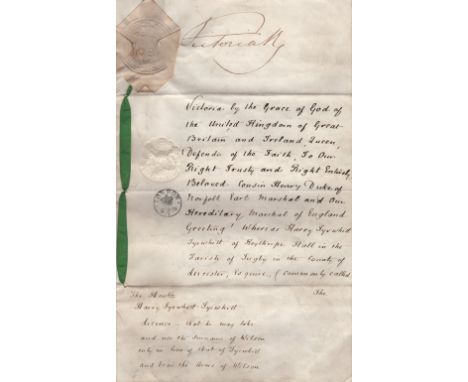 Victoria R
Victoria by the Grace of God of
the United Kingdom of Great
Britain and Ireland, Queen,
Defender of the Faith, To Our
Right Trusty and Right Entirely
Beloved Cousin Henry Duke of
Norfolk Earl Marshal and Our
Hereditary Marshal of England
Greeting! Whereas Harry Tyrwhitt
Tyrwhitt of Keythorpe Hall in the
Parish of Tugby in the County of
Leicester, Esquire, (commonly called
The
The
Harry Tyrwhitt Tyrwhitt
Licence – that he may take
and use the surname of Wilson
only in lieu of that of Tyrwhitt
and bear the Arms of Wilson